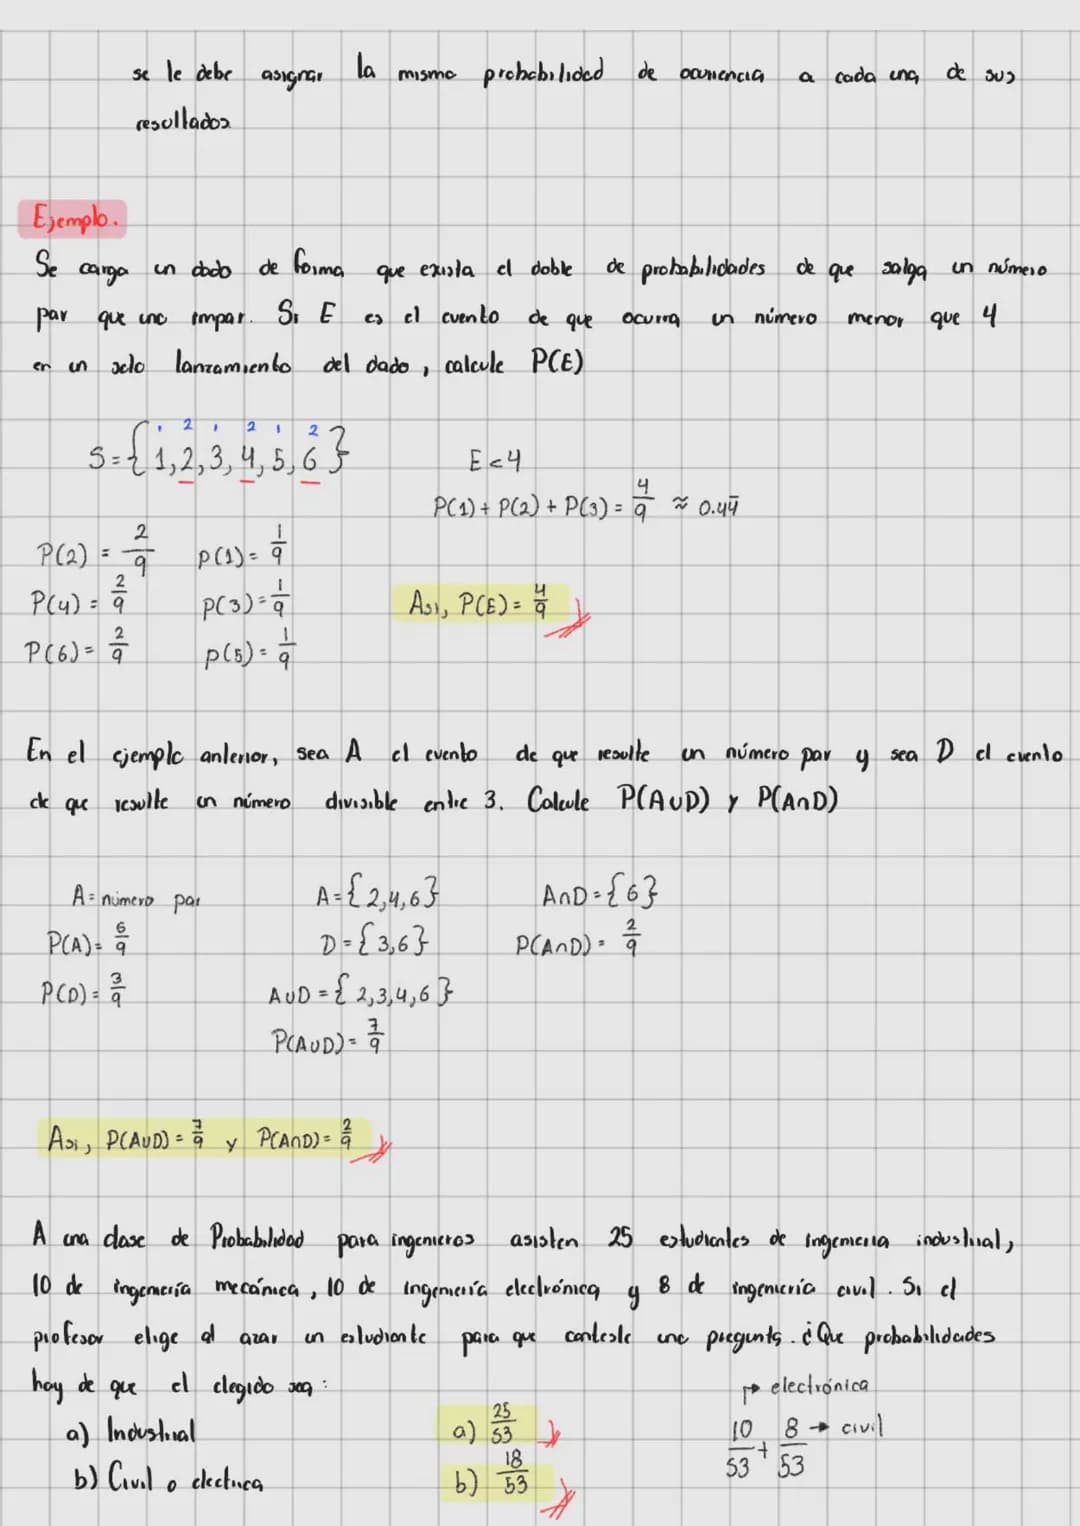 se le debe asignar la misma probabilidad de ocurrencia a cada una de sus
resultados
Ejemplo.
Se carga un dado de forma que exista el doble de probabilidades de que salga un número
par que uno impar. Si E es el evento de que ocurra un número menor que 4
en un solo lanzamiento del dado, calcule P(E)
1 2 1 2 1 2
S={1,2,3,4,5,6}
E<4
P(1)+P(2)+P(3)= 4/9 ≈ 0.44̄
P(2) = 2/9 P(1)= 1/9
P(4) = 2/9 P(3)= 1/9
Asi, P(E)= 4/9
P(6)= 2/9 P(5)= 1/9
En el ejemplo anterior, sea A el evento de que resulte un número par y sea D el evento
de que resulte un número divisible entre 3. Calcule P(A∪D) y P(A∩D)
A= número par A={2,4,6} A∩D={6}
P(A)= 6/9 D={3,6} P(A∩D)= 2/9
P(D)= 3/9 A∪D={2,3,4,6}
P(A∪D)= 7/9
Asi, P(A∪D)= 7/9 y P(A∩D)= 2/9
A una clase de Probabilidad para ingenieros asisten 25 estudiantes de ingeniería industrial,
10 de ingeniería mecánica, 10 de ingeniería electrónica y 8 de ingeniería civil. Si el
profesor elige al azar un estudiante para que conteste una pregunta. ¿Que probabilidades
hay de que el elegido sea:
→ electrónica
a) Industrial a) 25/53 10/53 + 8/53 → civil
b) Civil o electrica b) 18/53